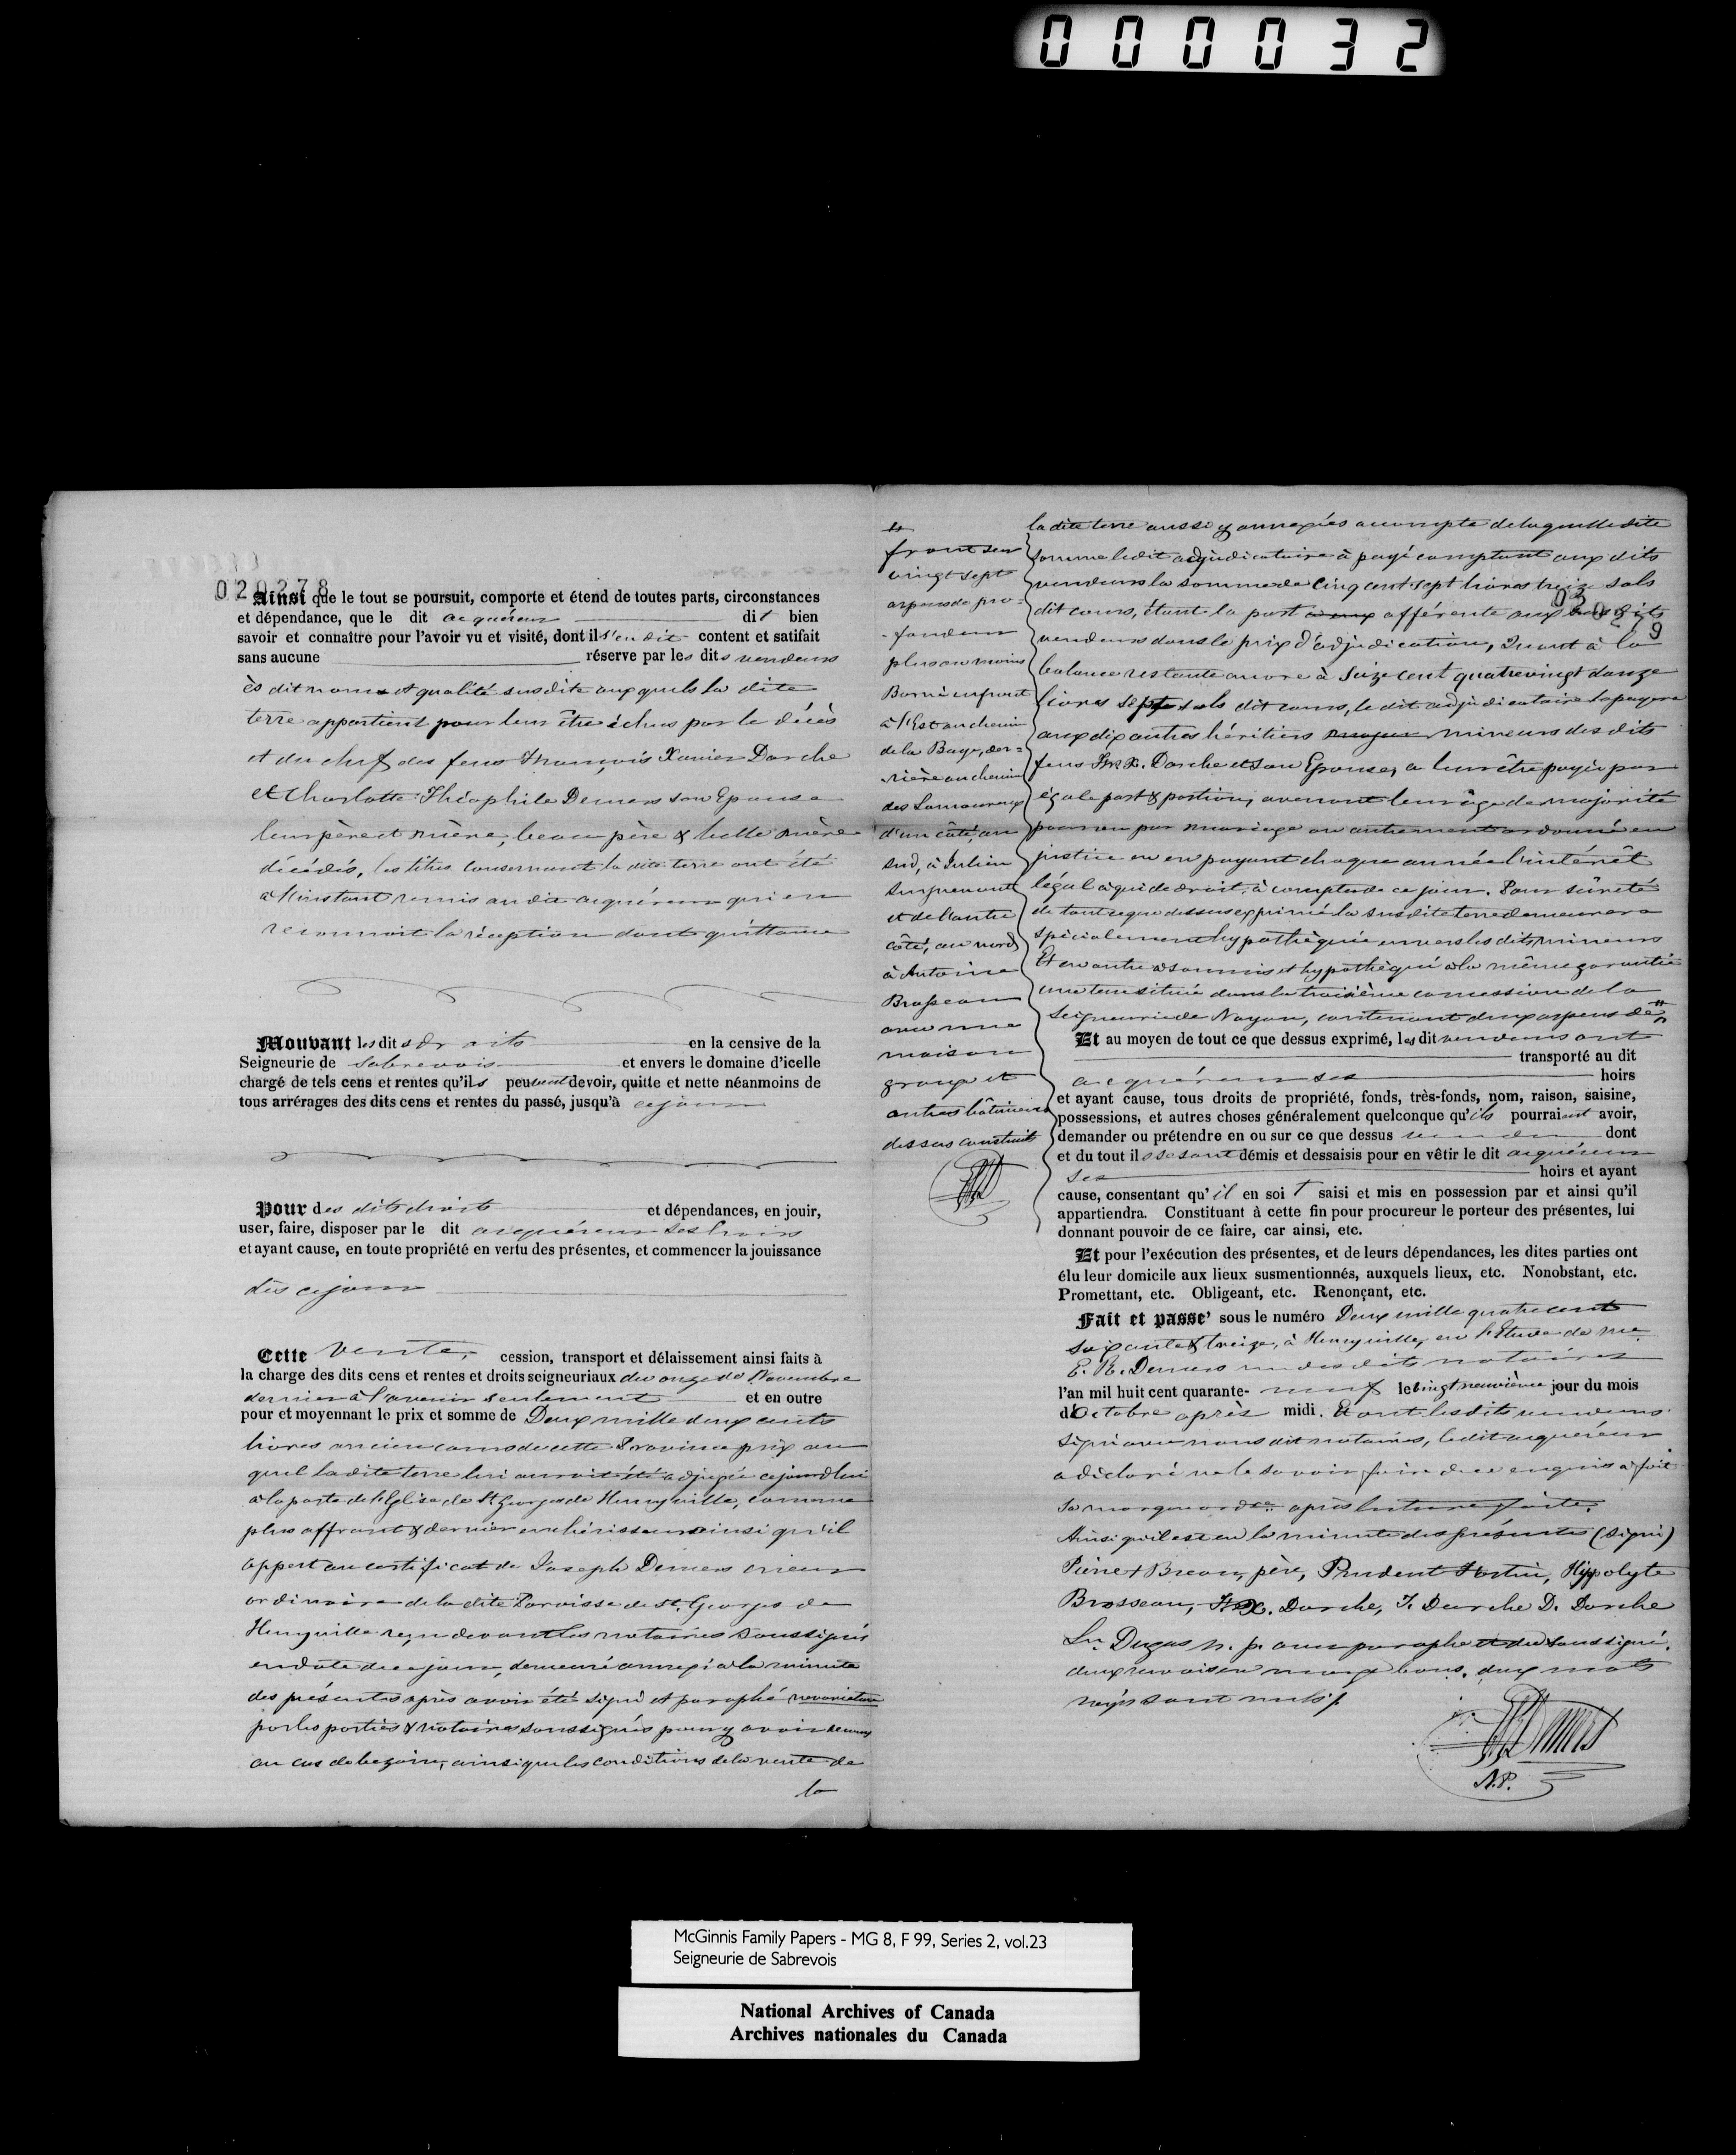 000032
020278
Ainsi que le tout se poursuit, comporte et étend de toutes parts, circonstances
et dépendance, que le dit acquéreur dit bien
savoir et connaître pour l'avoir vu et visité, dont il s'en dit content et satifait
sans aucune réserve par les dits vendeurs
ès dit noms et qualité susdite auxquels la dite
terre appartient pour leur être échus par le décès
et du chef des feus François Xavier Darche
et Charlotte Théophile Demers son Epouse
leurs père et mère, beau père & belle mère
décédés, les titres concernant la dite terre ont été
à l'instant remis au dit acquéreur qui en
reconnoit la réception dont quittance
Mouvant les dits droits en la censive de la
Seigneurie de Sabrevois et envers le domaine d'icelle
chargé de tels cens et rentes qu'ils peuvent devoir, quitte et nette néanmoins de
tous arrérages des dits cens et rentes du passé, jusqu'à ce jour
Pour des dits droits et dépendances, en jouir,
user, faire, disposer par le dit acquéreur ses hoirs
et ayant cause, en toute propriété en vertu des présentes, et commencer la jouissance
dès ce jour
Cette vente, cession, transport et délaissement ainsi faits à
la charge des dits cens et rentes et droits seigneuriaux du onze de Novembre
dernier à l'avenir seulement et en outre
pour et moyennant le prix et somme de Deux mille deux cents
livres ancien cours de cette Province prix au
quel ladite terre lui auroit été adjugée cejourdhui
à la porte de l'Eglise de St Georges de Henryville, comme
plus offrant & dernier enchérisseur ainsi qu'il
appert au certificat de Joseph Demers crieur
ordinaire de la dite Paroisse de St. Georges de
Henryville reçu devant les notaires soussignés
en date de ce jour, demeuré annexé à la minute
des présentes après avoir été signé et paraphé ne varietur
par les parties & notaires soussignés pour y avoir recours
au cas de besoin, ainsi que les conditions de la vente de
la
front sur
vingt sept
arpens de pro=
fondeur
plus ou moins
Borné en front
à l'Est au chemin
de la Baye, der=
rière au chemin
des Lamoureux
d'un côté, au
sud, à Julien
et de l'autre
côté, au nord
à Antoine
Brosseau
avec une
maison
grange et
autres bâtimens
dessus construits
la dite terre aussi y annexées acompte de laquelle dite
somme ledit adjudicataire à payé comptant aux dits
vendeurs la somme de Cinq cent sept livres treize sols
dit cours, étant la part afférente aux dits
020279
vendeurs dans le prix d'adjudication, Quant à la
balance restante encore à Seize cent quatrevingt douze
livres sept sols dit cours, le dit adjudicataire la payera
aux dix autres héritiers mineurs des dits
feus Frs X. Darche et son Epouse, à leur être payée par
égale part & portion, avenant leur âge de majorité
pourvu par mariage ou autrement ordonné en
justice en en payant chaque année l'intérêt
légal à qui de droit, à compter de ce jour. Pour sûreté
de tout ce que dessus exprimé la susdite terre demeurera
spécialement hypothéquée envers les dits mineurs
Et en outre a soumis et hypothéqué à la même garantie
une terre située dans la troisième concession de la
Seigneurie de Noyan, contenant deux arpens de
Et au moyen de tout ce que dessus exprimé, les dit vendeurs ont
transporté au dit
acquéreur ses hoirs
et ayant cause, tous droits de propriété, fonds, très-fonds, nom, raison, saisine,
possessions, et autres choses généralement quelconque qu'ils pourraient avoir,
demander ou prétendre en ou sur ce que dessus vendu dont
et du tout ils se sont démis et dessaisis pour en vêtir le dit acquéreur
ses hoirs et ayant
cause, consentant qu'il en soit saisi et mis en possession par et ainsi qu'il
appartiendra. Constituant à cette fin pour procureur le porteur des présentes, lui
donnant pouvoir de ce faire, car ainsi, etc.
Et pour l'exécution des présentes, et de leurs dépendances, les dites parties ont
élu leur domicile aux lieux susmentionnés, auxquels lieux, etc. Nonobstant, etc.
Promettant, etc. Obligeant, etc. Renonçant, etc.
Fait et passe' sous le numéro Deux mille quatre cent
soixante & treize, à Henryville, en l'Etude de me
E. R. Demers un des dits notaires
l'an mil huit cent quarante-neuf le vingt neuvième jour du mois
d'Octobre après midi. Et ont les dits vendeurs
signé avec nous dit notaires, le dit acquéreur
a déclaré ne le savoir faire de ce enquis a fait
sa marque ordre. après lecture faite.
Ainsi qu'il est en la minute des présentes (signé)
Pierre + Breau, père, Prudent Fortin, Hyppolyte
Brosseau, Frs X. Darche, J. Darche D. Darche
Ln. Dugas n. p. avec paraphe et du Soussigné.
deux renvois en marge bons. deux mots
rayés sont nuls/.
Demers
N.P.
McGinnis Family Papers - MG 8, F 99, Series 2, vol.23
Seigneurie de Sabrevois
National Archives of Canada
Archives nationales du Canada